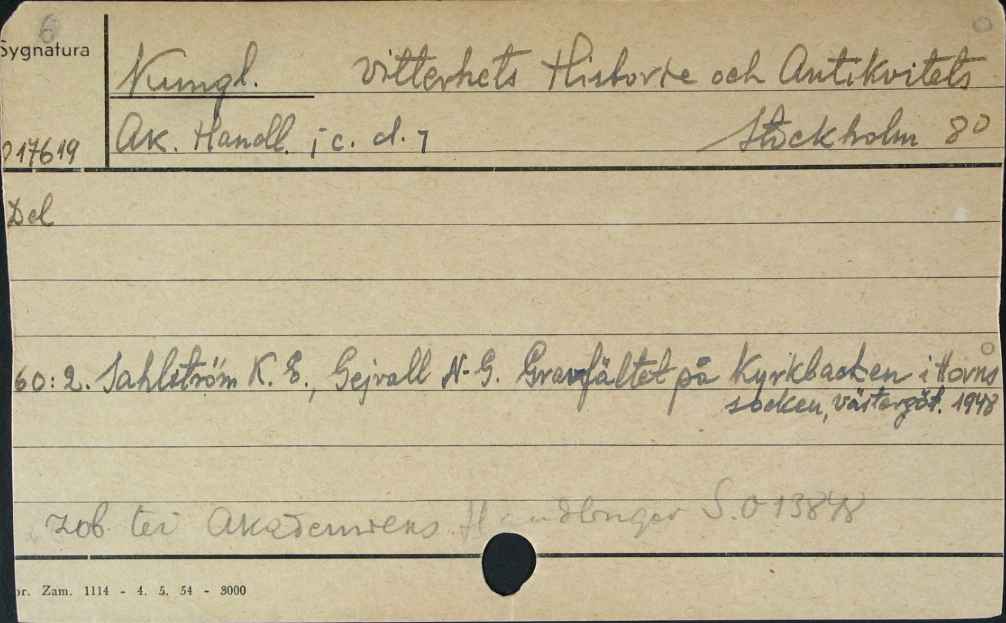 6
Sygnatura
Kungl. Vitterhets Historie och Antikvitets
017619
Ak. Handl. [c. d.] Stockholm 80
Del
60:2. Sahlström K. E., Gejvall N-G. Gravfältet på Kyrkbacken i Horns
socken, Västergöt. 1948
zob. też Akademiens Handlingar S.013848
or. Zam. 1114 - 4. 5. 54 - 3000